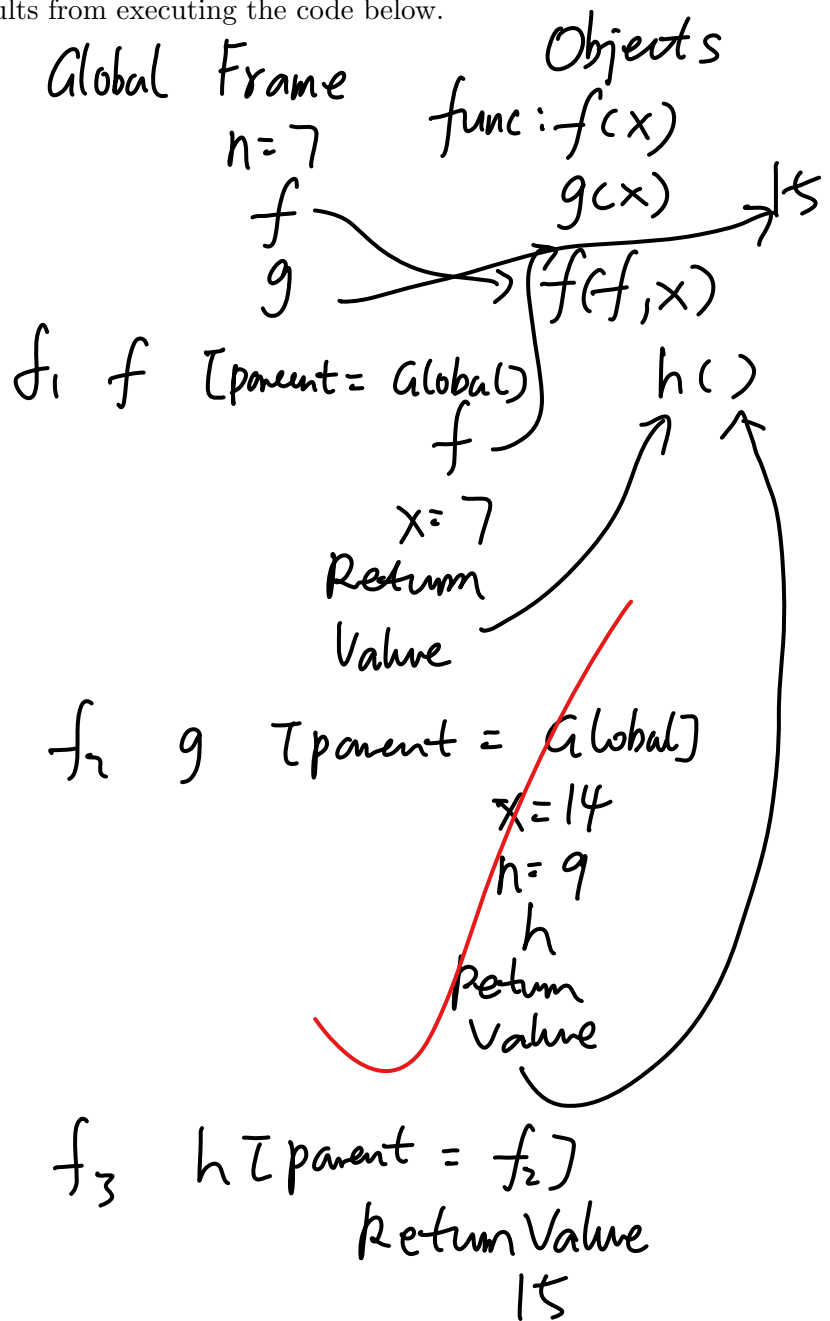 ults from executing the code below.
Global Frame
Objects
n=7
func: f(x)
f
g(x)
15
g
f(f,x)
f1 f [parent= Global]
h()
f
x=7
Return
Value
f2 g [parent = Global]
x=14
n=9
h
Return
Value
f3 h [parent = f2]
Return Value
15